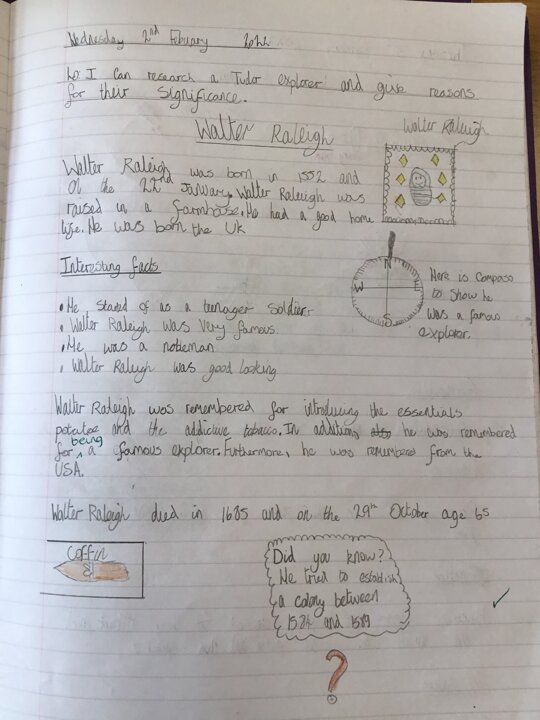 Wednesday 2nd Febuary 2022
LO: I can research a Tudor explorer and give reasons
for their significance.
Walter Raleigh
Walter Raleigh
Walter Raleigh was born in 1552 and
on the 22nd January. Walter Raleigh was
raised in a farmhouse. He had a good home
life. He was born the UK
Interesting facts
• He stared of as a teenager soldier.
• Walter Raleigh was very famous.
• He was a nobeman
• Walter Raleigh was good looking
N
W
S
Here is compass
to show he
was a famous
explorer.
Walter Raleigh was remembered for introducing the essentials
potatoe and the addictive tobacco. In addition, he was remembered
for being a famous explorer. Furthermore, he was remembered from the
USA.
Walter Raleigh died in 1685 and on the 29th October age 65
Coffin
Did you know?
He tried to establish
a colony between
1584 and 1589
?